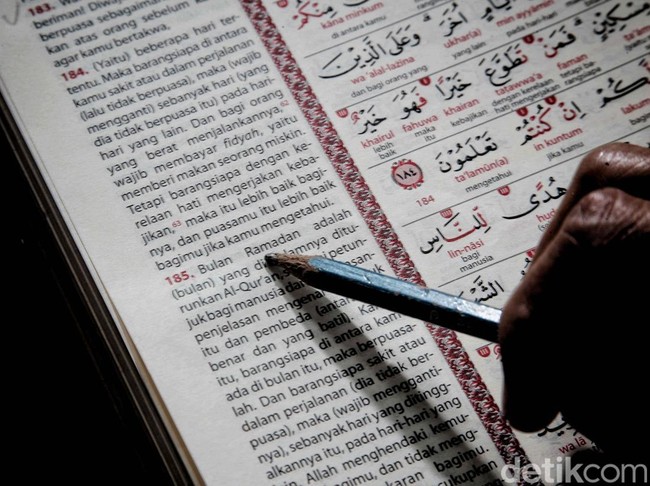 183.
beriman!
berpuasa sebagaiman
kan atas orang sebelum k
agar kamu bertakwa.
184. (Yaitu) beberapa hari ter-
tentu. Maka barangsiapa di antara
kamu sakit atau dalam perjalanan
(lalu tidak berpuasa), maka (wajib
mengganti) sebanyak hari (yang
dia tidak berpuasa itu) pada hari-
hari yang lain. Dan bagi orang
yang berat menjalankannya,
wajib membayar fidyah, yaitu
memberi makan seorang miskin.
Tetapi barangsiapa dengan ke-
relaan hati mengerjakan keba-
jikan,53 maka itu lebih baik bagi-
nya, dan puasamu itu lebih baik
bagimu jika kamu mengetahui.
185. Bulan Ramadan adalah
(bulan) yang di lamnya ditu-
runkan Al-Qur'an, petun-
juk bagi manusia dan
penjelasan mengenai
itu dan pembeda (antara
benar dan yang batil). Kar
itu, barangsiapa di antara kamu
ada di bulan itu, maka berpuasa-
lah. Dan barangsiapa sakit atau
dalam perjalanan (dia tidak ber-
puasa), maka (wajib mengganti-
nya), sebanyak hari yang ditingg
alkannya itu, pada hari-hari yang
lain. Allah menghendaki kemu
bagimu, dan tidak meng-
karan bagimu.
cukupkan
مِنْكُمْ
kāna minkum
di antara kamu
أُخَرَ
min ayyāmin
ukhar(a)
yang lain
وَعَلَى الَّذِيْنَ
wa 'alal-lażīna
dan bagi orang yang
مِسْكِيْنٍ
فَمَنْ تَطَوَّعَ خَيْرًا فَهُوَ خَيْرٌ
faman tatawwa'a khairan fahuwa khairul
tetapi barangsiapa dengan kerelaan hati mengerjakan kebajikan maka itu lebih baik
اِنْ كُنْتُمْ تَعْلَمُوْنَ
in kuntum ta'lamūn(a)
jika kamu mengetahui
١٨٤
184
هُدًى لِّلنَّاسِ
lin-nāsi
bagi manusia
wa la
detikcom